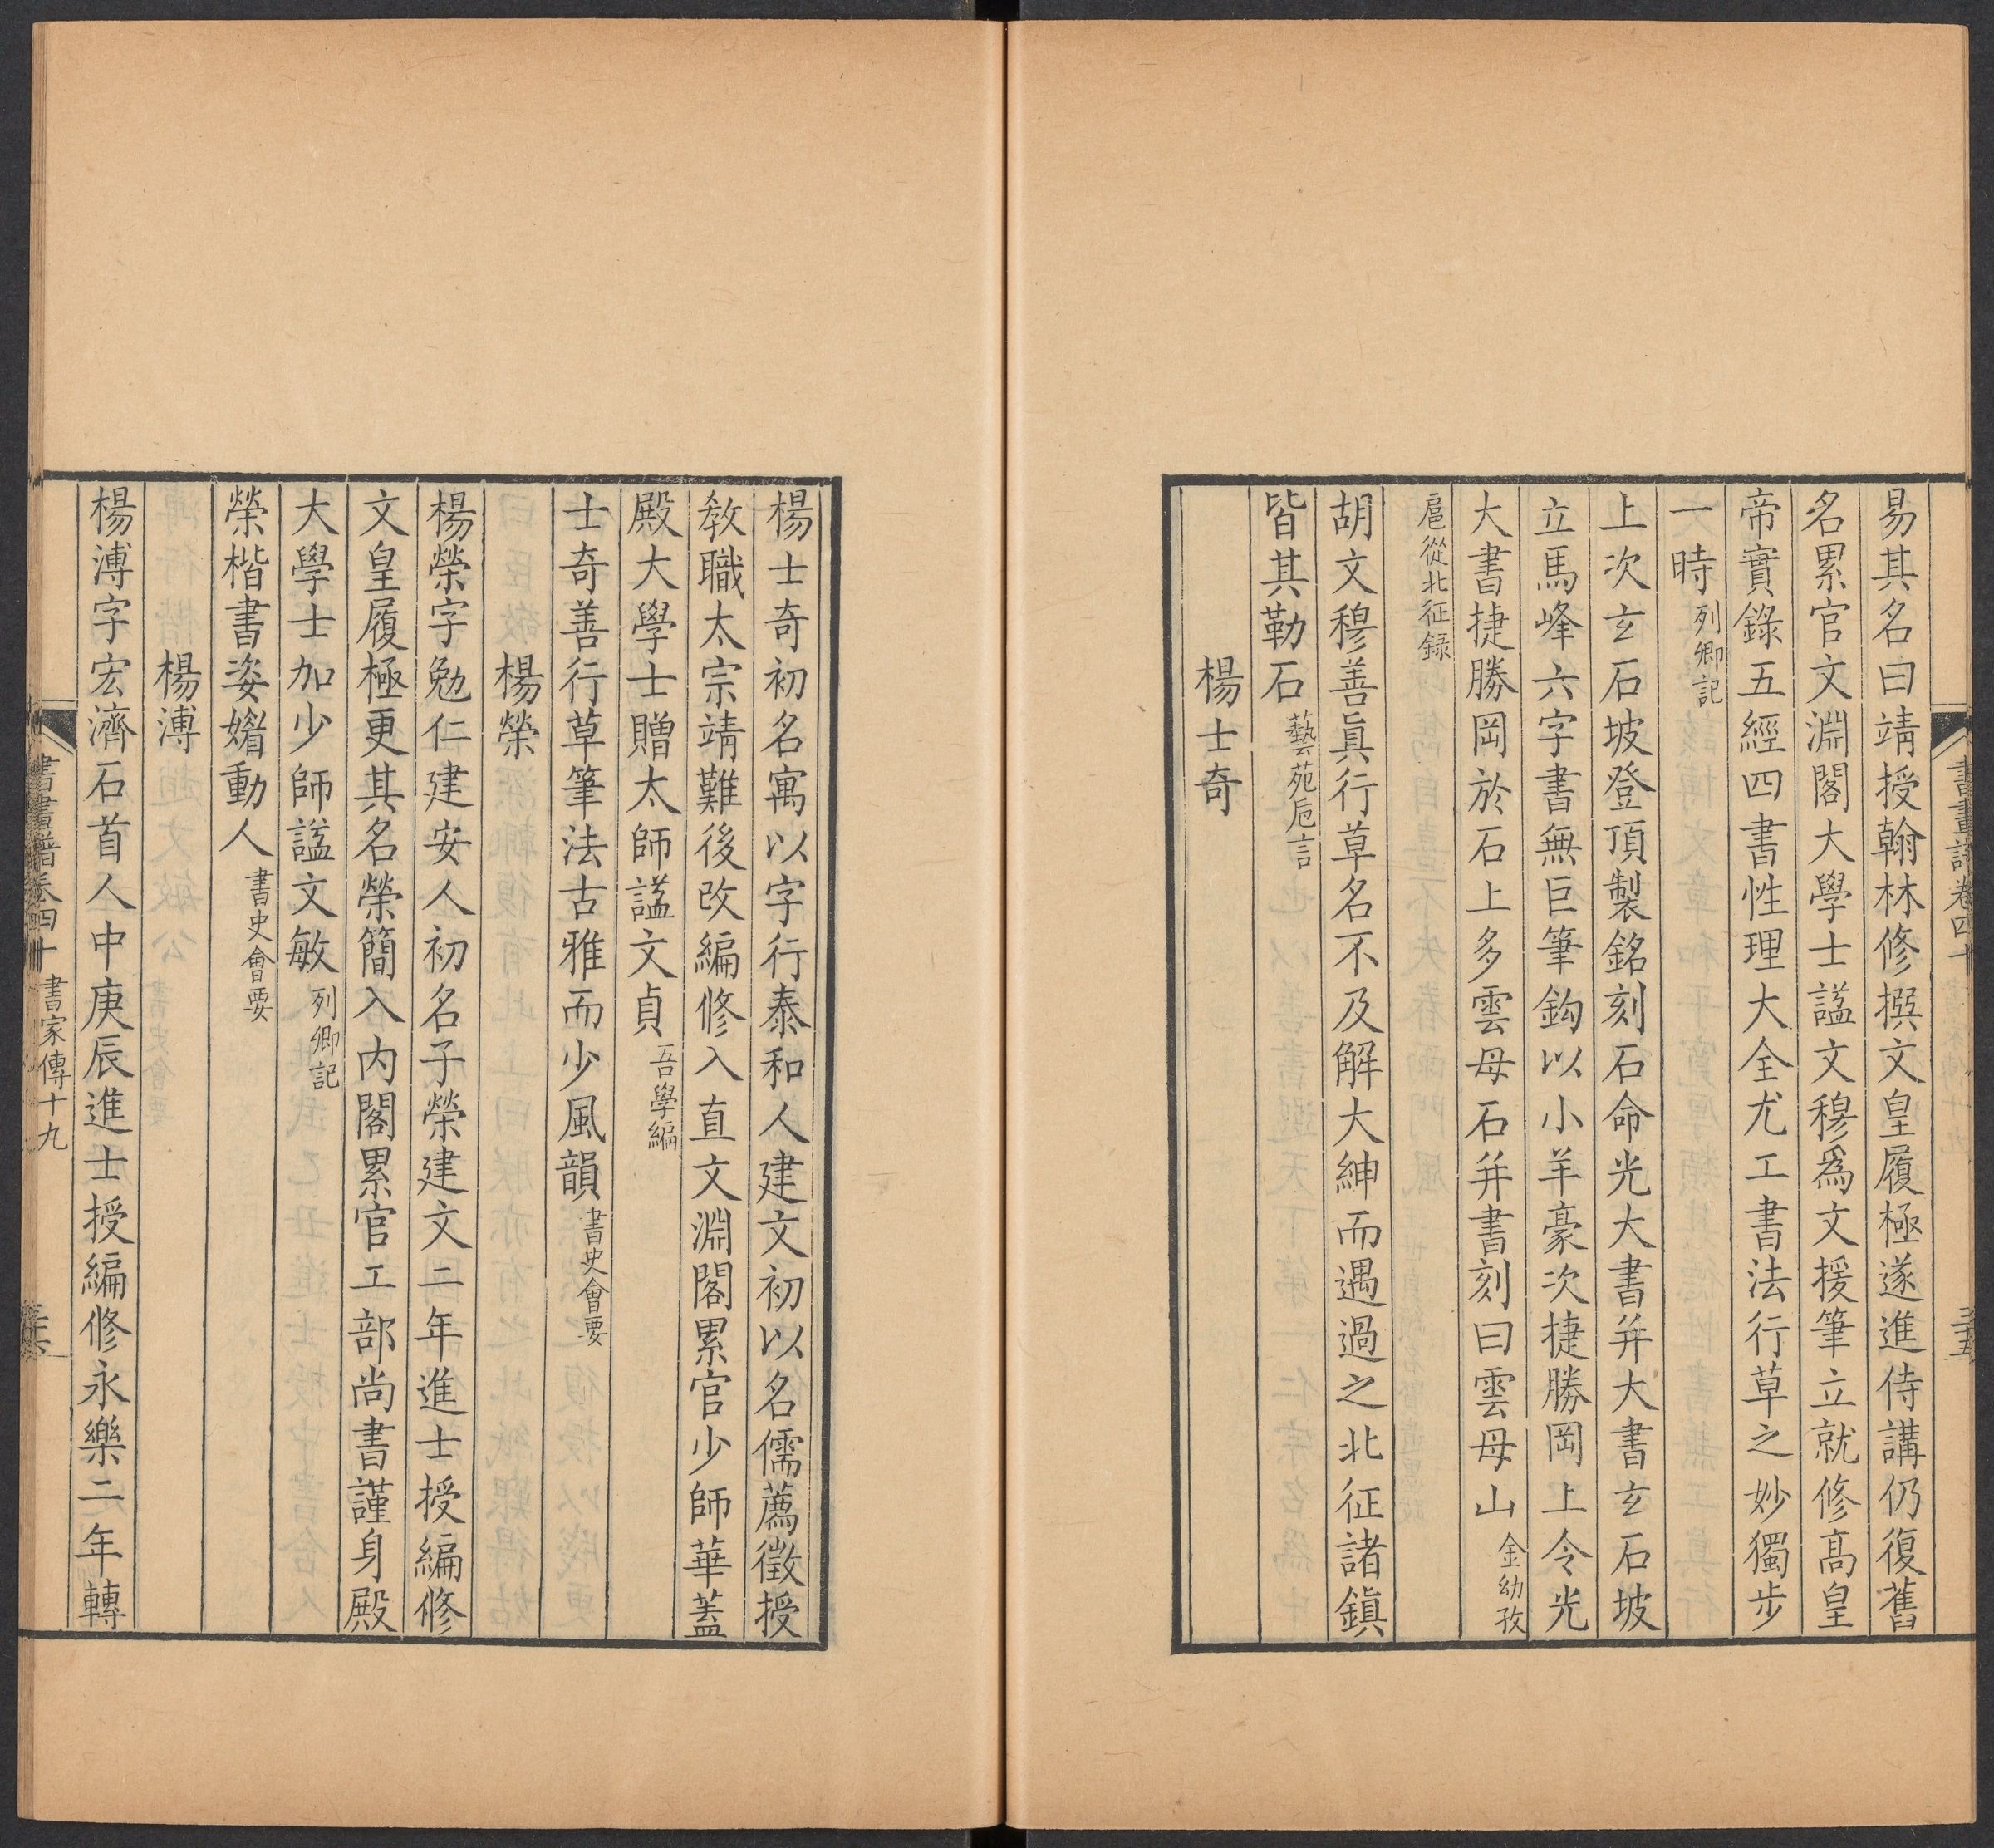 易其名曰靖授翰林修撰文皇履極遂進侍講仍復舊
名累官文淵閣大學士謚文穆爲文援筆立就修高皇
帝實錄五經四書性理大全尤工書法行草之妙獨步
一時列卿記
上次玄石坡登頂製銘刻石命光大書并大書玄石坡
立馬峰六字書無巨筆鈎以小羊豪次捷勝岡上令光
大書捷勝岡於石上多雲母石并書刻曰雲母山金幼孜
扈從北征録
胡文穆善眞行草名不及解大紳而遇過之北征諸鎭
皆其勒石藝苑卮言
楊士奇
楊士奇初名寓以字行泰和人建文初以名儒薦徵授
教職太宗靖難後改編修入直文淵閣累官少師華蓋
殿大學士贈太師謚文貞吾學編
士奇善行草筆法古雅而少風韻書史會要
楊榮
楊榮字勉仁建安人初名子榮建文二年進士授編修
文皇履極更其名榮簡入內閣累官工部尚書謹身殿
大學士加少師謚文敏列卿記
榮楷書姿媚動人書史會要
楊溥
楊溥字宏濟石首人中庚辰進士授編修永樂二年轉
書畫譜卷四十書家傳十九